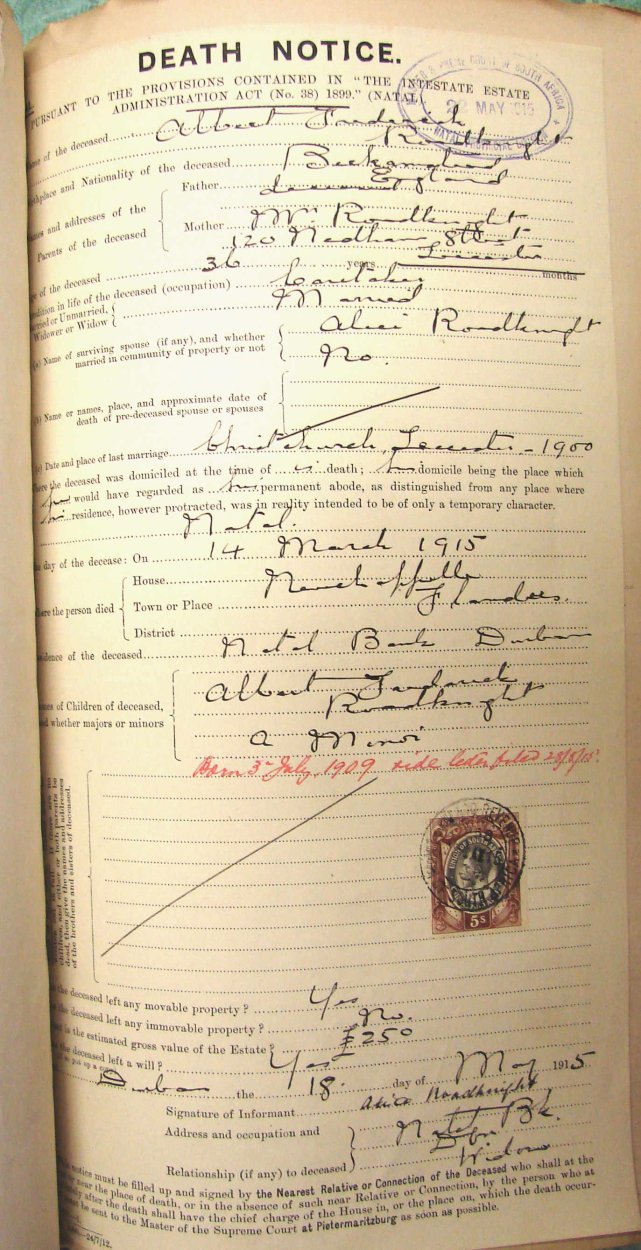 DEATH NOTICE.
PURSUANT TO THE PROVISIONS CONTAINED IN "THE INTESTATE ESTATE
ADMINISTRATION ACT (No. 38) 1899." (NATAL
22 MAY 1915
of the deceased Albert Frederick
Roadknight
Birthplace and Nationality of the deceased
England
Names and addresses of the
Parents of the deceased
Father
Mother Mrs Roadknight
120 Street
Leicester
of the deceased 36 years months
Condition in life of the deceased (occupation) Caretaker
Married or Unmarried,
Widower or Widow Married
Name of surviving spouse (if any), and whether
married in community of property or not
Alice Roadknight
No.
(b) Name or names, place, and approximate date of
death of pre-deceased spouse or spouses
Date and place of last marriage Christchurch, Leicester - 1900
the deceased was domiciled at the time of his death; his domicile being the place which
he would have regarded as his permanent abode, as distinguished from any place where
his residence, however protracted, was in reality intended to be of only a temporary character.
Natal.
day of the decease: On 14 March 1915
Where the person died
House
Town or Place Flanders.
District
Residence of the deceased Natal Bank Durban
Names of Children of deceased,
and whether majors or minors
Albert Frederick
Roadknight
a Minor
Born 3rd July, 1909 vide letter filed 28/5/15.
children, and either or both parents be
dead, then give the names and addresses
of the brothers and sisters of deceased.
5s
the deceased left any movable property? Yes
the deceased left any immovable property? No.
is the estimated gross value of the Estate? £250
the deceased left a will? Yes
Durban the 18. day of May 1915
Signature of Informant Alice Roadknight
Address and occupation and
Natal Bk.
Dbn
Relationship (if any) to deceased Widow
notice must be filled up and signed by the Nearest Relative or Connection of the Deceased who shall at the
or near the place of death, or in the absence of such near Relative or Connection, by the person who at
after the death shall have the chief charge of the House in, or the place on, which the death occur-
be sent to the Master of the Supreme Court at Pietermaritzburg as soon as possible.
24/7/12.